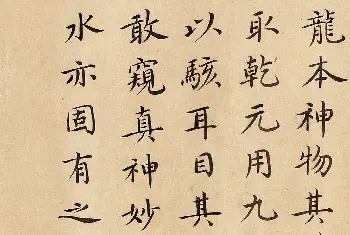 龍本神物其
取乾元用九
以駭耳目其
敢窺真神妙
水亦固有之